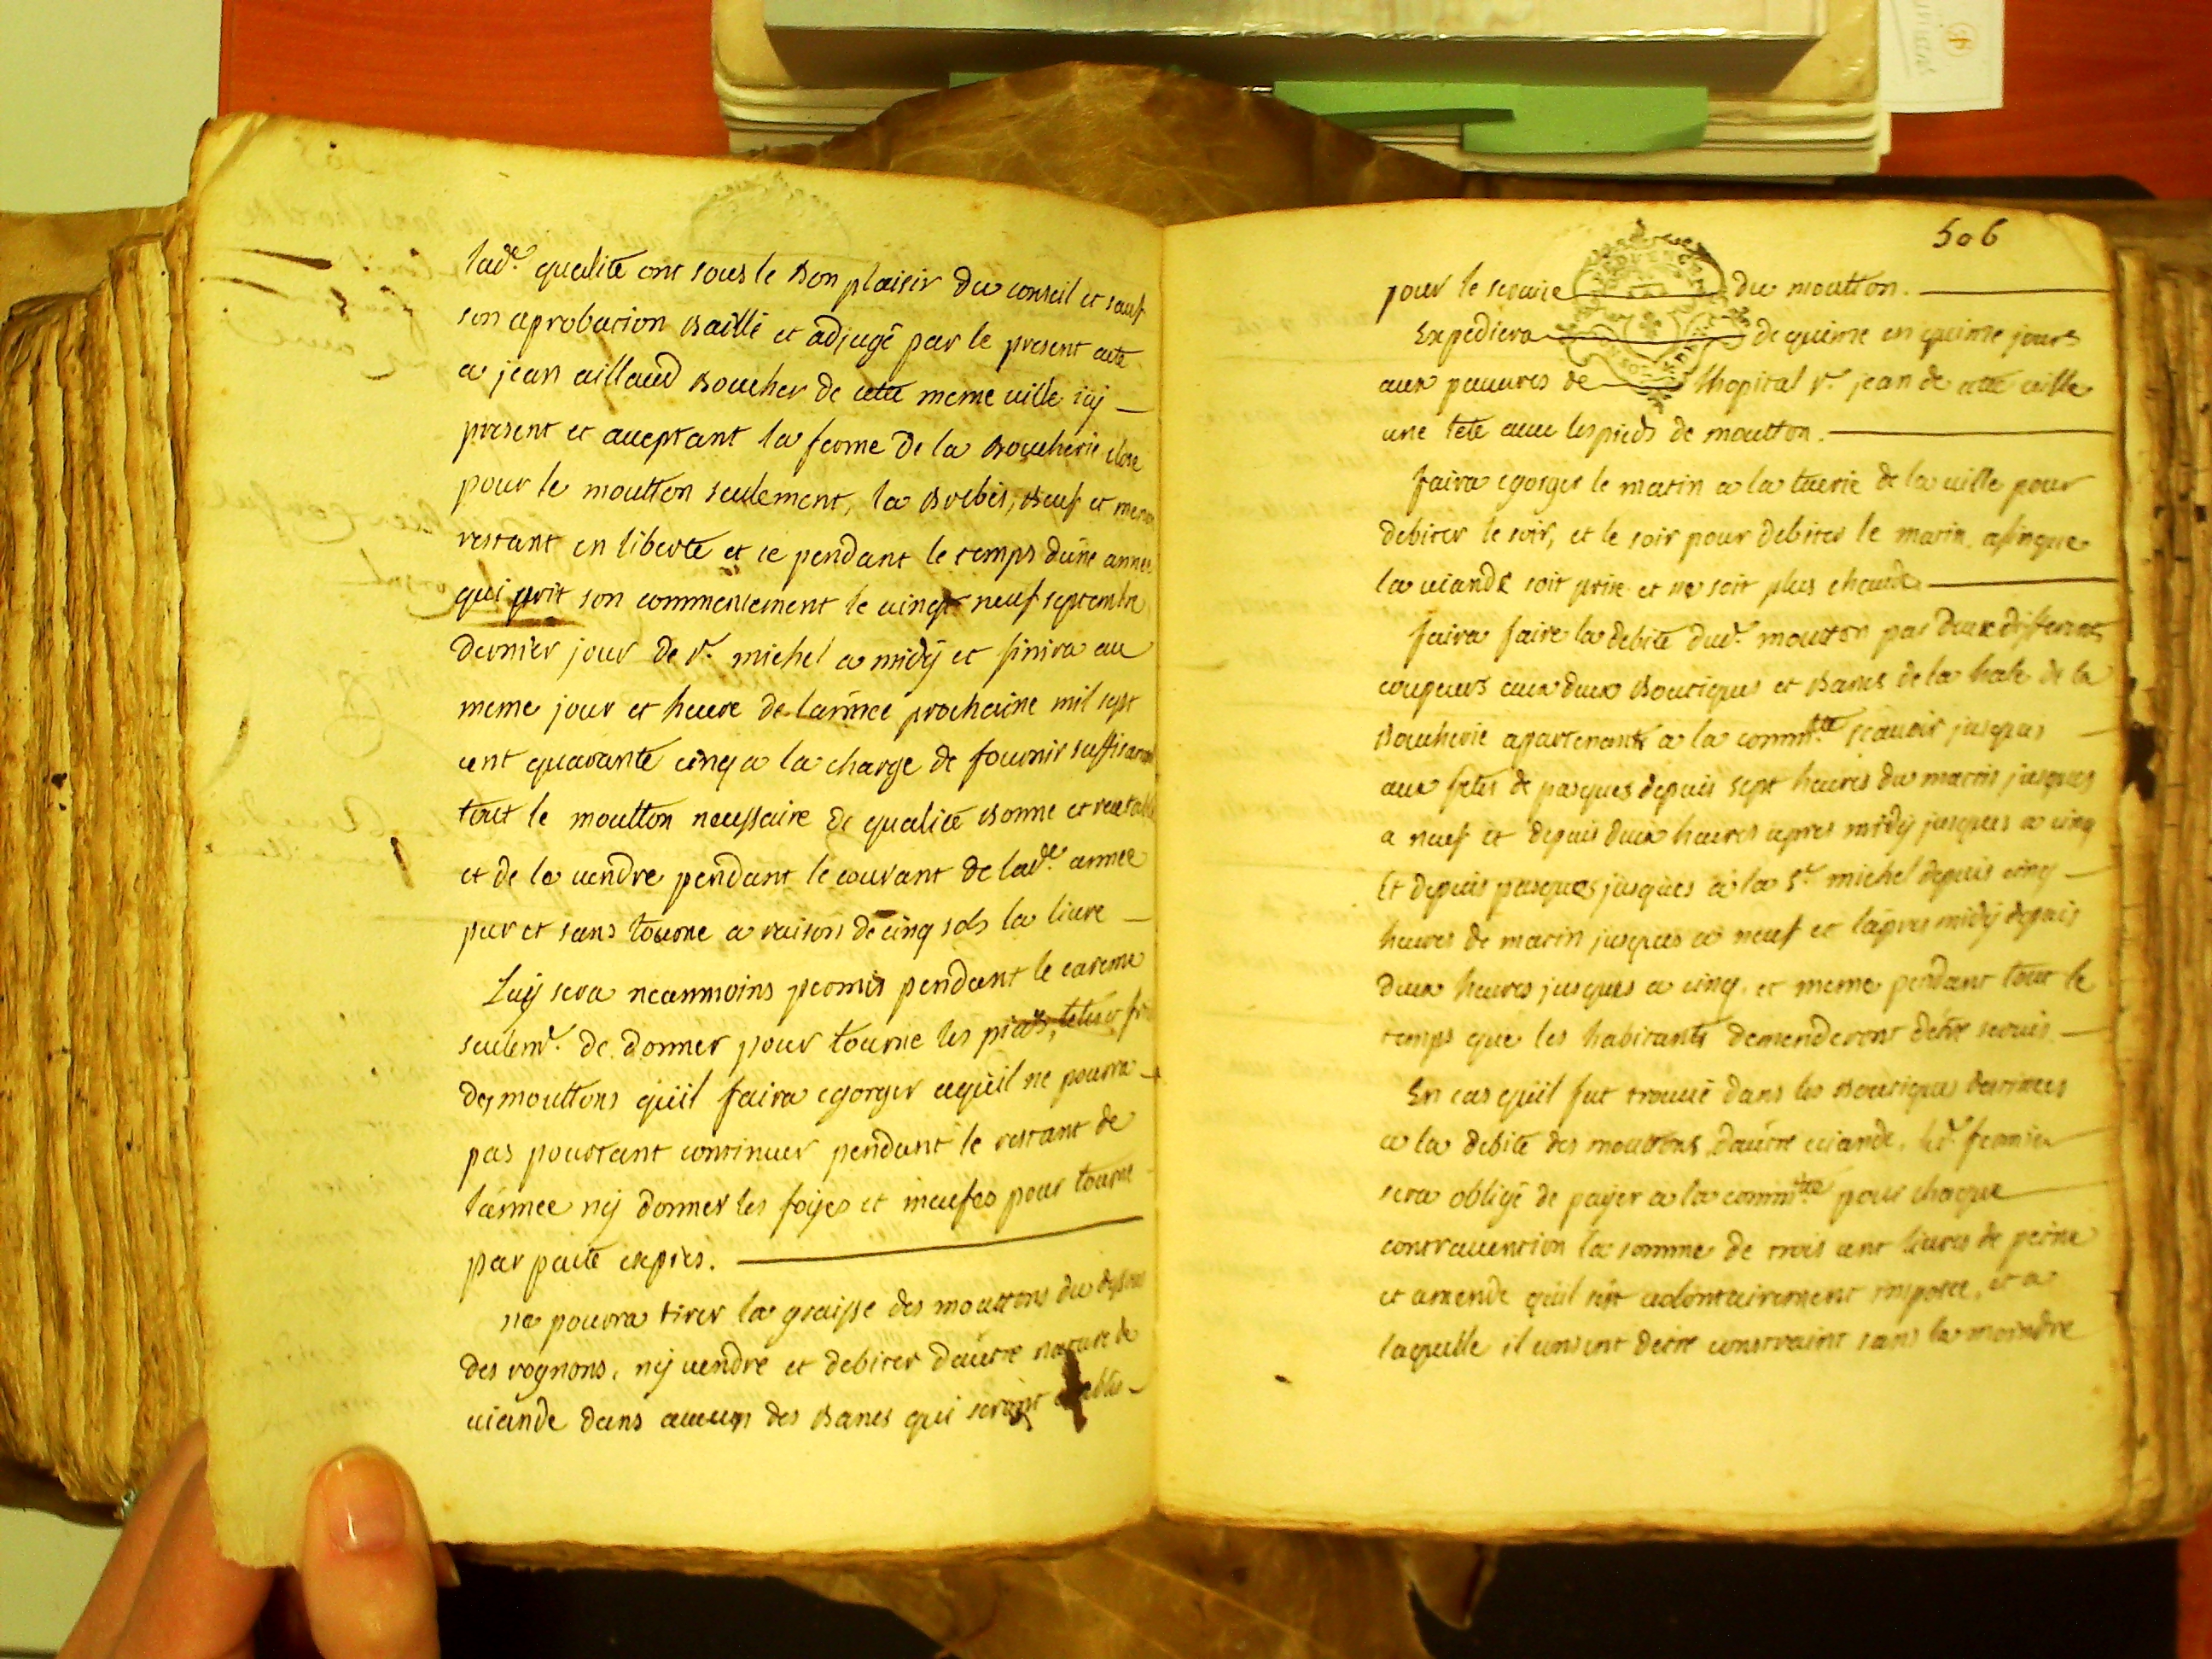 lad.e qualité ont sous le bon plaisir du conseil et sauf
son aprobation baillé et adjugé par le present acte
a jean aillaud boucher de cette meme ville icy
present et acceptant la ferme de la boucherie close
pour le moutton seulement, la brebis, beuf et menon
restant en liberté et ce pendant le temps dune année
qui prit son commencement le vingt neuf septembre
dernier jour de s.t michel a midy et finira au
meme jour et heure de lannée prochaine mil sept
cent quarante cinq a la charge de fournir suffisament
tout le moutton necessaire de qualité bonne et recetable
et de le vendre pendant le courant de lad.e année
pur et sans tourne a raison de cinq sols la livre
Luy sera neanmoins permis pendant le careme
seulem.t de donner pour tourne les pieds, tetes et
des mouttons quil faira egorger cequil ne pourra
pas pourtant continuer pendant le restant de
lannee ny donner les foyes et meufes pour tourne
par pacte exprès.
ne pourra tirer la graisse des mouttons du dessus
des rognons, ny vendre et debiter dautre nature de
viande dans aucun des bancs qui seront etablis
506
pour le service du moutton.
Expediera de quinze en quinze jours
aux pauvres de lhopital s.t jean de cette ville
une tete avec les pieds de moutton.
faira egorger le matin a la tuerie de la ville pour
debiter le soir, et le soir pour debiter le matin afinque
la viande soit prise et ne soit plus chaude
faira faire la debite dud.t moutton par deux differents
coupeurs aux deux boutiques et bancs de la hale de la
boucherie apartenants a la comm.té scavoir jusques
aux fetes de pasques depuis sept heures du matin jusques
a neuf et depuis deux heures apres midy jusques a cinq
Et depuis pasques jusques a la s.t michel depuis cinq
heures de matin jusques a neuf et lapres midy depuis
deux heures jusques a cinq, et meme pendant tout le
temps que les habitants demenderont detre servis
En cas quil fut trouvé dans les boutiques destinées
a la debite des mouttons dautre viande, led.t fermier
sera obligé de payer a la comm.té pour chaque
contravention la somme de trois cent livres de peine
et amende quil sest volontairement imposée, et a
laquelle il consent detre constraint sans la moindre